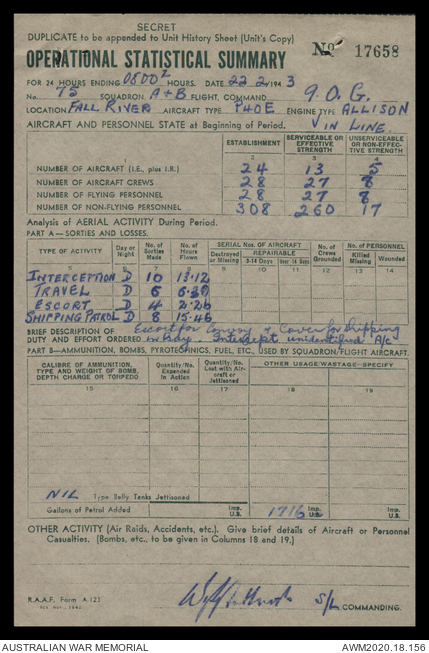 SECRET
DUPLICATE to be appended to Unit History Sheet (Unit's Copy)
OPERATIONAL STATISTICAL SUMMARY No 17658
FOR 24 HOURS ENDING 0800Z HOURS. DATE 22.2/1943
No. 75 SQUADRON A+B FLIGHT, COMMAND 9.O.G.
LOCATION FALL RIVER AIRCRAFT TYPE P40E ENGINE TYPE ALLISON
AIRCRAFT AND PERSONNEL STATE at Beginning of Period. V IN LINE.
ESTABLISHMENT SERVICEABLE OR EFFECTIVE STRENGTH UNSERVICEABLE OR NON-EFFECTIVE STRENGTH
1 2 3 4
NUMBER OF AIRCRAFT (I.E., plus I.R.) 24 13 5
NUMBER OF AIRCRAFT CREWS 28 27 8
NUMBER OF FLYING PERSONNEL 28 27 8
NUMBER OF NON-FLYING PERSONNEL 308 260 17
Analysis of AERIAL ACTIVITY During Period.
PART A—SORTIES AND LOSSES.
TYPE OF ACTIVITY Day or Night No. of Sorties Made No. of Hours Flown SERIAL Nos. OF AIRCRAFT Destroyed or Missing REPAIRABLE 3-14 Days Over 14 Days No. of Crews Grounded No. of PERSONNEL Killed Missing Wounded
5 6 7 8 9 10 11 12 13 14
INTERCEPTION D 10 13.12
TRAVEL D 6
ESCORT D 4
SHIPPING PATROL D 8 15.46
BRIEF DESCRIPTION OF DUTY AND EFFORT ORDERED Escort for Convoy + Cover for Shipping
in bay. Intercept unidentified A/c
PART B—AMMUNITION, BOMBS, PYROTECHNICS, FUEL, ETC., USED BY SQUADRON/FLIGHT AIRCRAFT.
CALIBRE OF AMMUNITION, TYPE AND WEIGHT OF BOMB, DEPTH CHARGE OR TORPEDO Quantity/No. Expended in Action Quantity/No. Lost with Aircraft or Jettisoned OTHER USAGE/WASTAGE—SPECIFY
15 16 17 18 19
NIL Type Belly Tanks Jettisoned
Gallons of Petrol Added Imp. U.S. 1716 Imp. U.S. Imp. U.S.
OTHER ACTIVITY (Air Raids, Accidents, etc.). Give brief details of Aircraft or Personnel
Casualties. (Bombs, etc., to be given in Columns 18 and 19.)
S/L COMMANDING.
R.A.A.F. Form A.123
AUSTRALIAN WAR MEMORIAL AWM2020.18.156